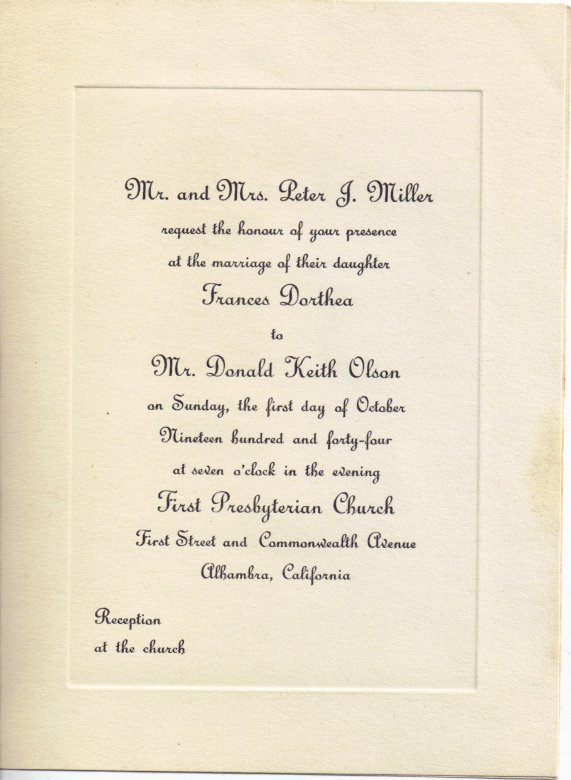 Mr. and Mrs. Peter J. Miller
request the honour of your presence
at the marriage of their daughter
Frances Dorthea
to
Mr. Donald Keith Olson
on Sunday, the first day of October
Nineteen hundred and forty-four
at seven o'clock in the evening
First Presbyterian Church
First Street and Commonwealth Avenue
Alhambra, California
Reception
at the church